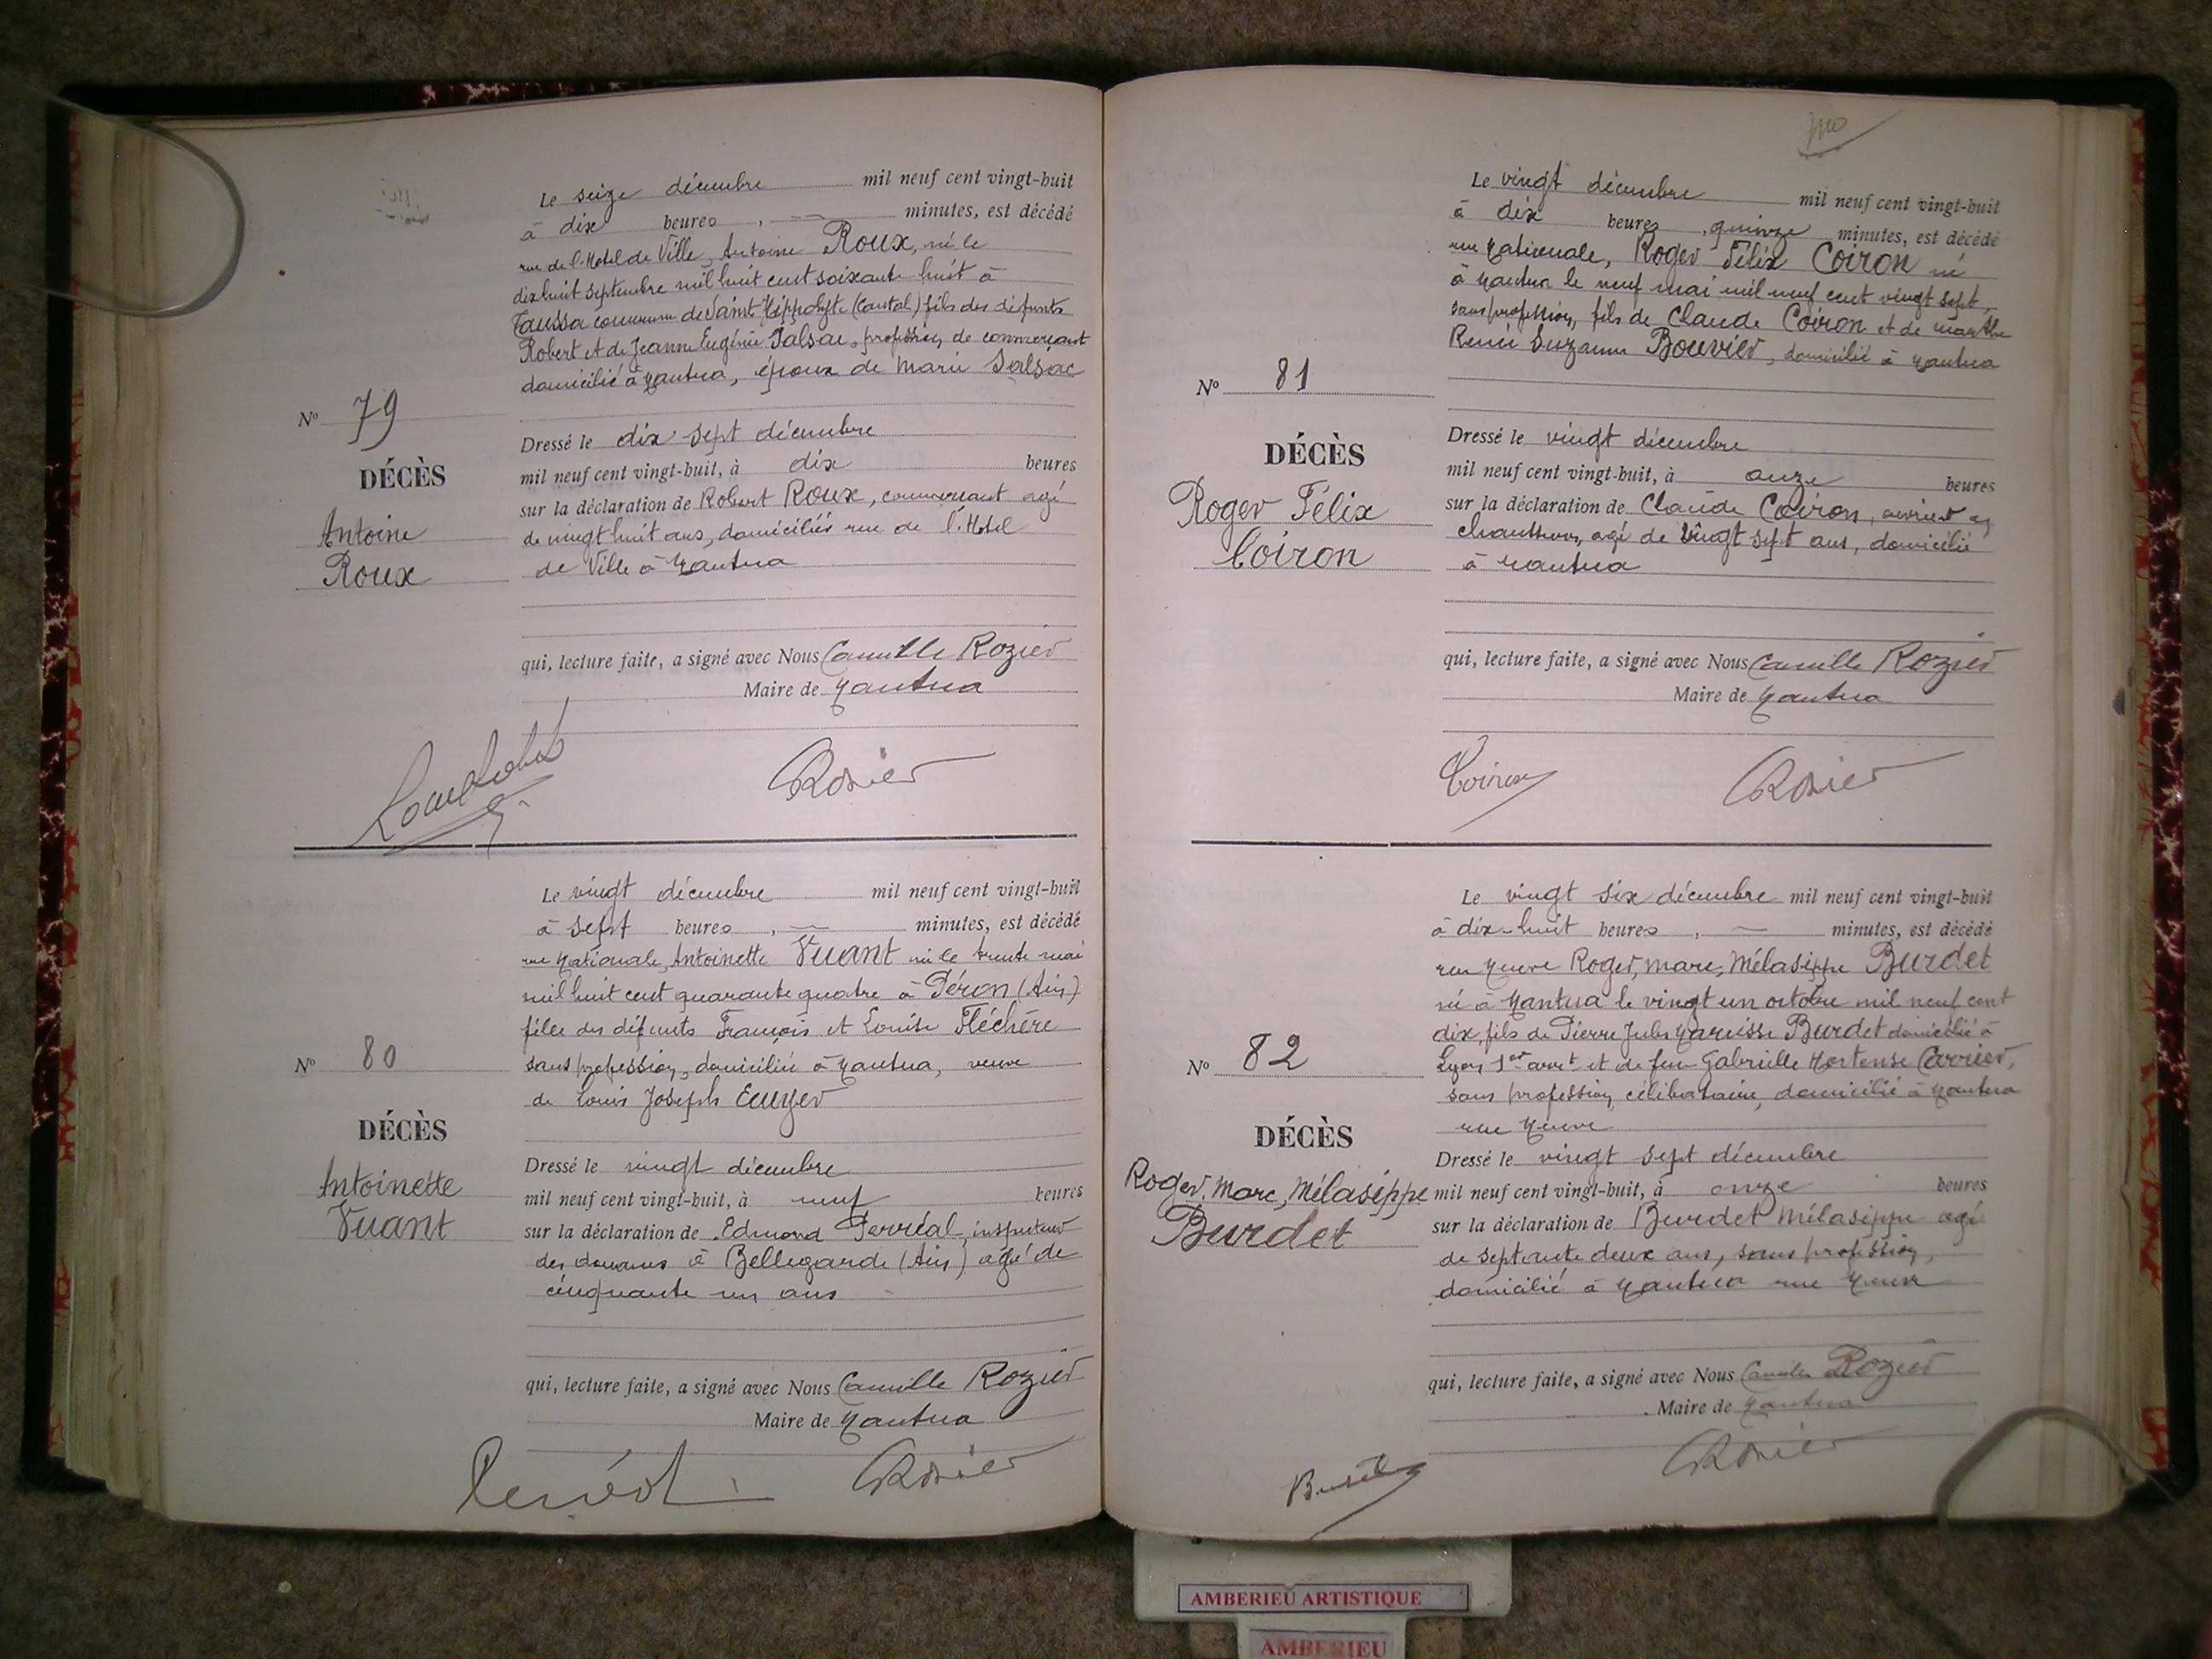 Le seize décembre mil neuf cent vingt-huit
à dix heures, — minutes, est décédé
rue de l'Hotel de Ville, Antoine Roux, né le
dix huit septembre mil huit cent soixante huit à
commune de Saint Hippolyte (Cantal) fils des défunts
Robert et de Jeanne Eugénie Salsac, profession de commerçant
domicilié à Nantua, époux de Marie Salsac
No 79
DÉCÈS
Antoine
Roux
Dressé le dix sept décembre
mil neuf cent vingt-huit, à dix heures
sur la déclaration de Robert Roux, commerçant agé
de vingt huit ans, domiciliés rue de l'Hotel
de Ville à Nantua
qui, lecture faite, a signé avec Nous Camille Rozier
Maire de Nantua
Rosier
Le vingt décembre mil neuf cent vingt-huit
à sept heures, — minutes, est décédé
rue Nationale, Antoinette Vuant née le trente mai
mil huit cent quarante quatre à Péron (Ain)
fille des défunts François et Louise Fléchère
sans profession, domiciliée à Nantua, veuve
de Louis Joseph Ecuyer
No 80
DÉCÈS
Antoinette
Vuant
Dressé le vingt décembre
mil neuf cent vingt-huit, à neuf heures
sur la déclaration de Edmond Perréal, inspecteur
des douanes à Bellegarde (Ain) agé de
cinquante un ans
qui, lecture faite, a signé avec Nous Camille Rozier
Maire de Nantua
Rosier
Le vingt décembre mil neuf cent vingt-huit
à dix heures, quinze minutes, est décédé
rue Nationale, Roger Félix Coiron né
à Nantua le neuf mai mil neuf cent vingt sept,
sans profession, fils de Claude Coiron et de Marthe
Renée Suzanne Bouvier, domicilié à Nantua
No 81
DÉCÈS
Roger Félix
Coiron
Dressé le vingt décembre
mil neuf cent vingt-huit, à onze heures
sur la déclaration de Claude Coiron, ouvrier en
chaussures, agé de vingt sept ans, domicilié
à Nantua
qui, lecture faite, a signé avec Nous Camille Rozier
Maire de Nantua
Coiron
Rosier
Le vingt six décembre mil neuf cent vingt-huit
à dix-huit heures, — minutes, est décédé
rue Neuve Roger, Marc, Mélasippe Burdet
né à Nantua le vingt un octobre mil neuf cent
dix, fils de Pierre Jules Narcisse Burdet domicilié à
Lyon 1er arrt et de feue Gabrielle Hortense Carrier,
sans profession, célibataire, domicilié à Nantua
rue Neuve
No 82
DÉCÈS
Roger, Marc, Mélasippe
Burdet
Dressé le vingt sept décembre
mil neuf cent vingt-huit, à onze heures
sur la déclaration de Burdet Mélasippe agé
de septante deux ans, sans profession,
domicilié à Nantua rue Neuve
qui, lecture faite, a signé avec Nous Camille Rozier
Maire de Nantua
Rosier
AMBERIEU ARTISTIQUE
AMBERIEU